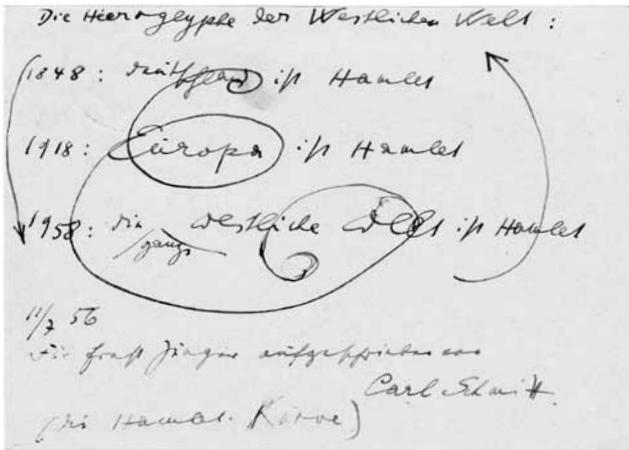 Die Hieroglyphe der Westlichen Welt:
1848: Deutschland ist Hamlet
1918: Europa ist Hamlet
1958: die westliche Welt ist Hamlet
ganze
11/7 56
Für Ernst Jünger aufgeschrieben von
Carl Schmitt.
(die Hamlet-Kurve)